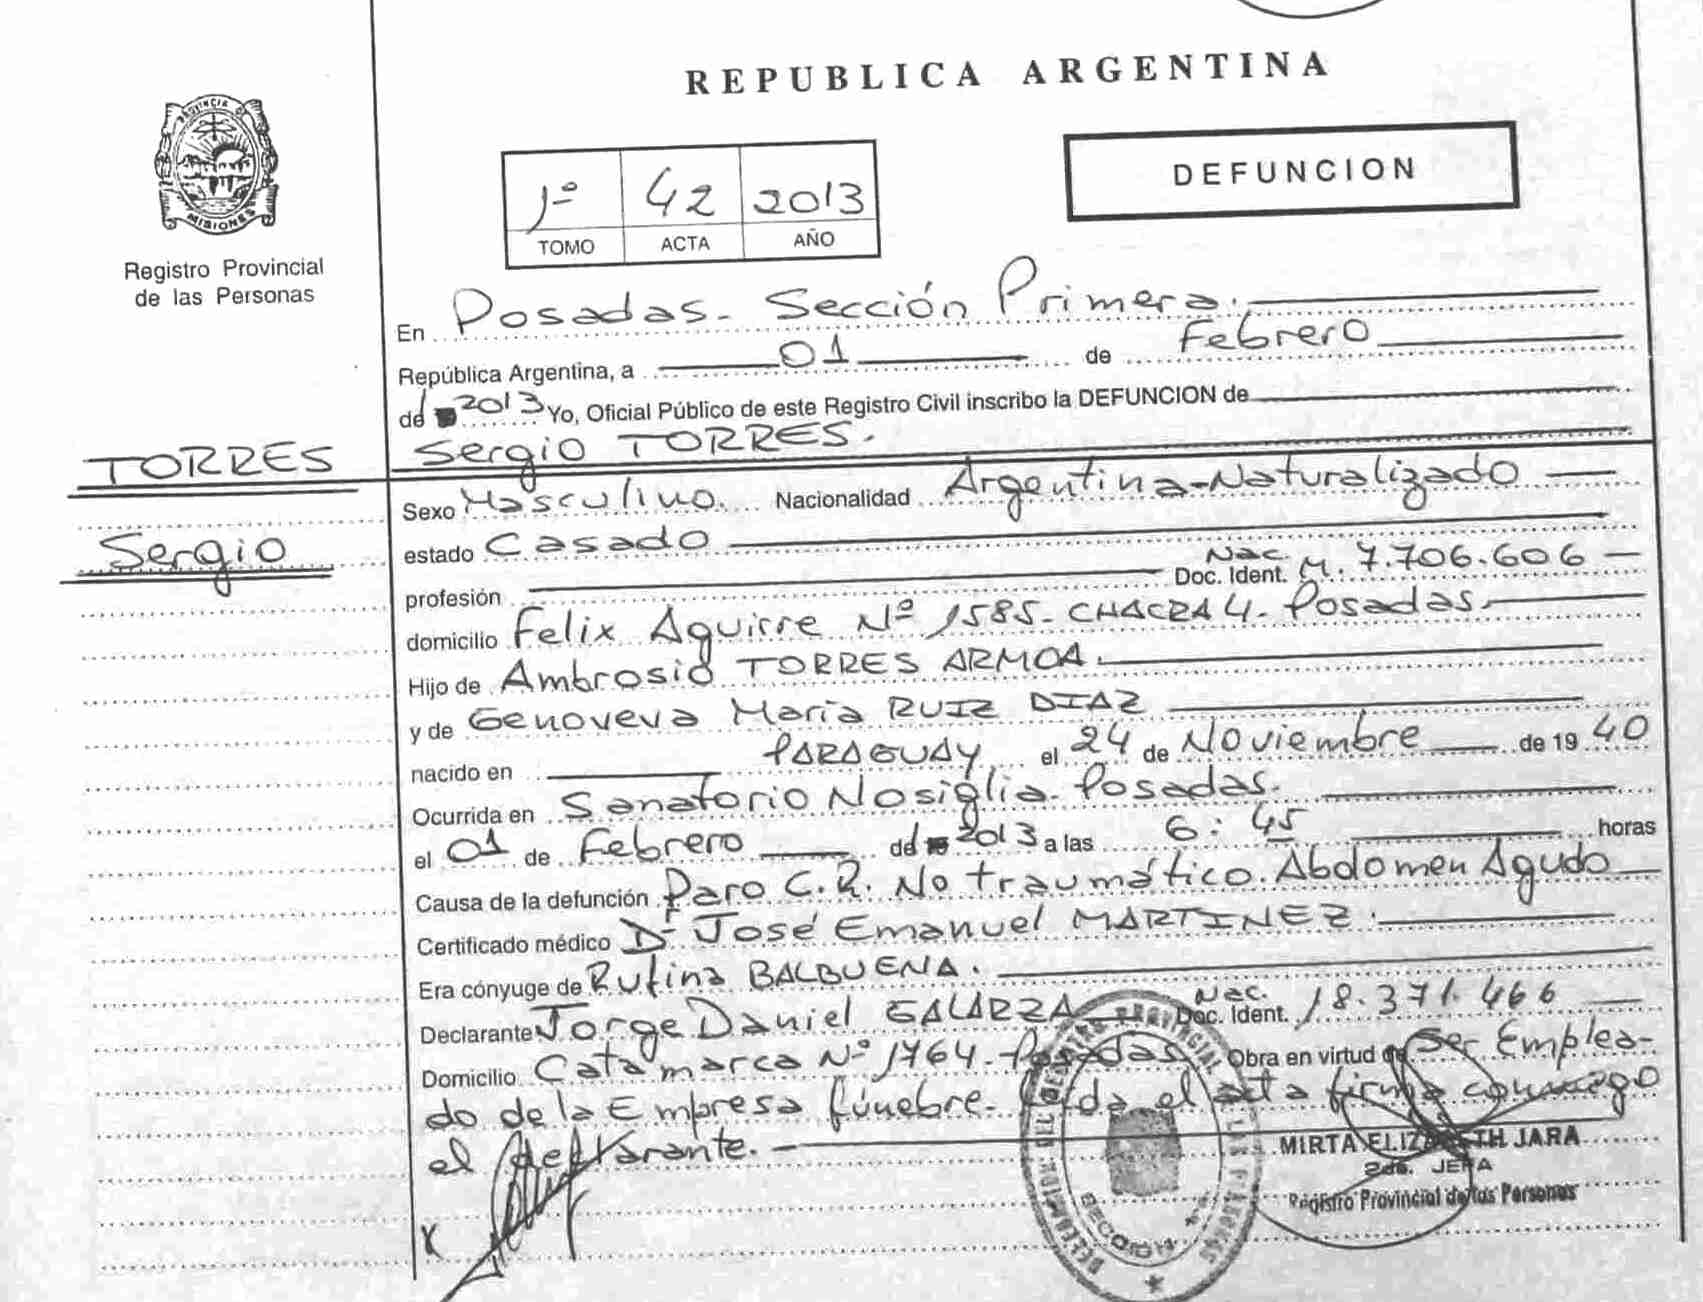 REPUBLICA ARGENTINA
PROVINCIA D
MISIONES
Registro Provincial
de las Personas
DEFUNCION
1º 42 2013
TOMO ACTA AÑO
En Posadas. Sección Primera.
República Argentina, a 01 de Febrero
de 2013 Yo, Oficial Público de este Registro Civil inscribo la DEFUNCION de
TORRES Sergio TORRES.
Sexo Masculino. Nacionalidad Argentina-Naturalizado
Sergio estado Casado
profesión Nac. Doc. Ident. M. 7.706.606
domicilio Felix Aguirre Nº 1585. CHACRA 4. Posadas.
Hijo de Ambrosio TORRES ARMOA.
y de Genoveva María RUIZ DIAZ
nacido en PARAGUAY el 24 de Noviembre de 1940
Ocurrida en Sanatorio Nosiglia. Posadas.
el 01 de Febrero de 2013 a las 6:45 horas
Causa de la defunción Paro C.R. No traumático. Abdomen Agudo
Certificado médico Dr José Emanuel MARTINEZ.
Era cónyuge de Rufina BALBUENA.
Declarante Jorge Daniel GALARZA Nac. Doc. Ident. 18.371.466
Domicilio Catamarca Nº 1764. Posadas Obra en virtud de Ser Emplea-
do de la Empresa fúnebre. Leida el acta firma conmigo
el declarante.
MIRTA ELIZABETH JARA
2da. JEFA
Registro Provincial de las Personas
X